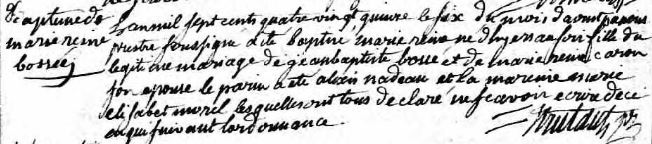 Baptême de
marie reine
bossé
Lan mil sept cents quatre vingt quinze le six du mois daoust par nous
prestre soussigné a été baptisé marie reine né d'hyer au soir fille du
legitime mariage de jean baptiste bossé et de marie reine caron
son epouse le parin a été alexis nadeau et la mareine marie
elisabet morel lesquelles ont tous declaré ne scavoir ecrire de ce
enquis suivant lordonnance.